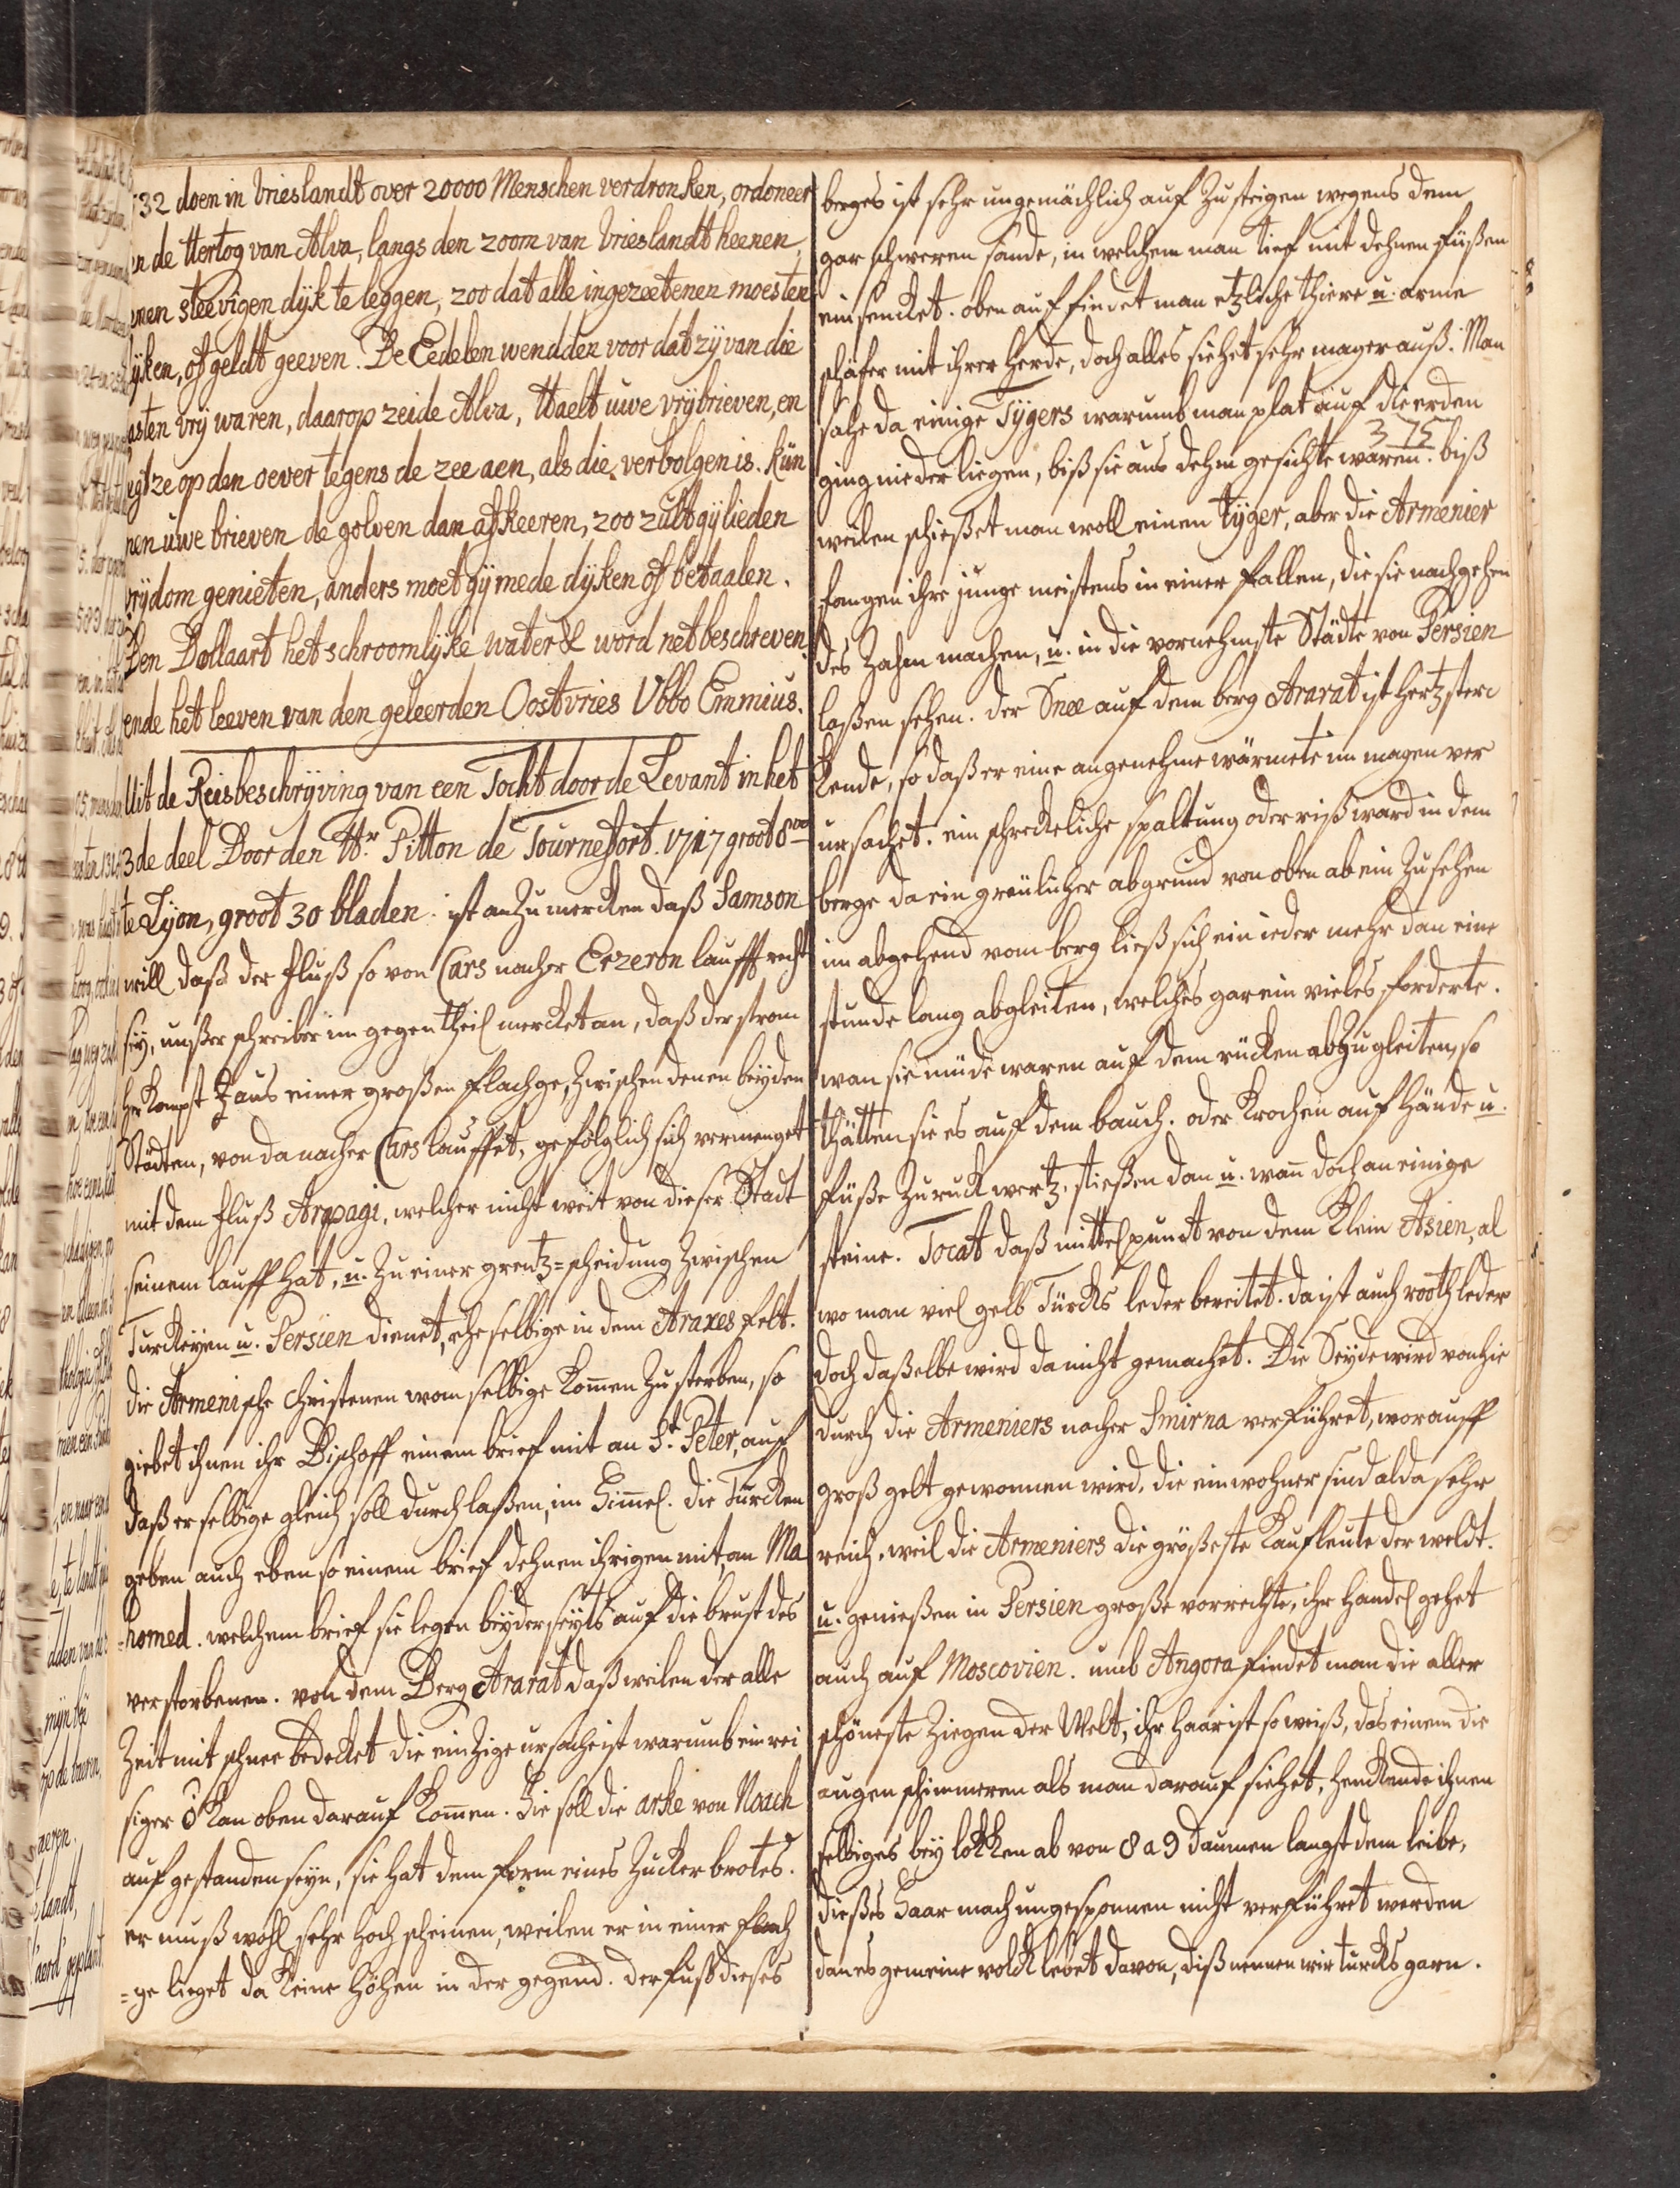 532 doen in Vrieslandt over 20000 Menschen verdronken, ordoneer
en de Hertog van Alva, langs den zoom van Vrieslandt heenen,
eenen steevigen dijk te leggen, zoo dat alle ingezeetenen moesten
dyken, of geldt geeven. De Eedelen wendden voor dat zy van die
lasten vrij waren, daarop zeide Alva, Haelt uwe vrybrieven, en
legt ze op den oever tegens de zee aen, als die verbolgen is. kün
nen uwe brieven de golven dan afkeeren, zoo zult gylieden
vrijdom genieten, anders moet gij mede dijken of betaalen.
Den Dollaart het schroomlyke water & word net beschreven.
ende het leeven van den geleerden Oostvries Ubbo Emmius.
Uit de Reisbeschryving van een Tocht door de Levant in het
3de deel Door den Hr. Pitton de Tournefort. 1717 groot 8vo
te Lyon, groot 30 bladen. ist anzumercken daß Samson
will daß der fluß so von Cars nacher Erzeron laufft recht
sey, unßer schreiber im gegentheil mercket an, daß der strom
herkompt aus einer großen flachge, zwischen denen beyden
Städten, von da nacher Cars lauffet, gefolglich sich vermenget
mit dem fluß Arpagi, welcher nicht weit von dieser Stadt
seinem lauff hat, u. zu einer grentz=scheidung zwischen
Turckeyen u. Persien dienet, ehe selbige in dem Araxes felt.
die Armenische Christenen wan selbige komen zu sterben, so
giebet ihnen ihr Bischoff einem brief mit an St. Peter, auf
daß er selbige gleich soll durchlaßen, im Himel. die Türcken
geben auch eben so einem brief dehnen ihrigen mit, an Ma
=homed. welchem brief sie legen beyderseyts auf die brust des
verstorbenen. von dem Berg Ararat daß weilen der alle
Zeit mit schnee bedecket die einzige ursache ist warumb ein rei
siger ō kan oben darauf komen. Hie soll die arke von Noach
auf gestanden seyn, sie hat dem form eines Zuckerbrotes.
er muß wohl sehr hoch scheinen, weilen er in einer flach
=ge lieget da keine Höhen in der gegend. der fuß dieses
berges ist sehr ungemächlich auf zu steigen wegens dem
gar schweren sande, in welchem man tief mit dehnen füßen
einsencket. oben auf findet man etzliche thiere u. arme
schäfer mit ihrer herde, doch alles siehet sehr mager auß. Man
sahe da einige Tygers warumb man plat auf die erden
375
ging nieder liegen, biß sie aus dehm gesichte waren. biß
weilen schießet man woll einem tyger, aber die Armenier
fangen ihre junge meistens in einer fallen, die sie nachgehen
des zahm machen, u. in die vornehmste Städte von Persien
laßen sehen. der Snee auf dem berg Ararat ist hertzster
kende, so daß er eine angenehme wärmete im magen ver
ursachet. ein schreckeliche spaltung oder riß ward in dem
berge da ein greülicher abgrund von oben ab ein zu sehen
im abgehend vom berg ließ sich ein ieder mehr dan eine
stunde lang abgleiten, welches gar ein vieles forderte.
wan sie müde waren auf dem rücken ab zu gleiten, so
thätten sie es auf dem bauch. oder krochen auf hände u.
füße zuruckwertz, stießen dan u. wan doch an einige
steine. Tocat daß mittelpunct von dem Klein Asien, al
wo man viel gelb Türcks leder bereitet. da ist auch rooth leder
doch daßelbe wird da nicht gemachet. Die Seyde wird von hie
durch die Armeniers nacher Smirna verführet, worauff
groß gelt gewonnen wird, die einwohner sind alda sehr
reich, weil die Armeniers die größeste Kaufleute der weldt.
u. genießen in Persien große vorrechte, ihr handel gehet
auch auf Moscovien. umb Angora findet man die aller
schöneste Ziegen der Welt, ihr haar ist so weiß, das einem die
augen schimmeren als man darauf siehet, henckende ihnen
selbiges bey lokken ab von 8 a 9 daumen langst dem leibe,
dießes Haar mach ungesponnen nicht verführet werden
dan es gemeine volck lebet davon, diß nennen wir turcks garn.